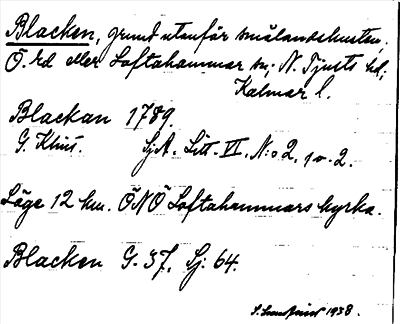 Blacken, grund utanför smålandskusten.
Ö. Ed eller Loftahammar sn; N. Tjusts hd;
Kalmar l.
Blackan 1789.
G. Klint. SjA. Litt. VI. N:o 2. 1 o. 2.
Läge 12 km. ÖNÖ Loftahammars kyrka.
Blacken G. 37. Sj: 64.
1938.